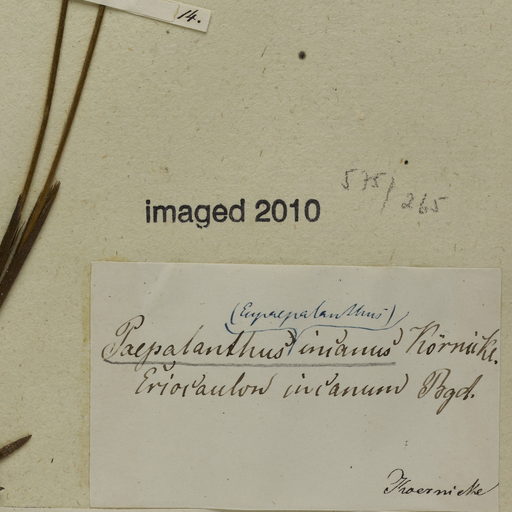 14.
575/265
imaged 2010
(Eupaepalanthus)
Paepalanthus incanus Körnicke.
Eriocaulon incanum Bgd.
Koernicke